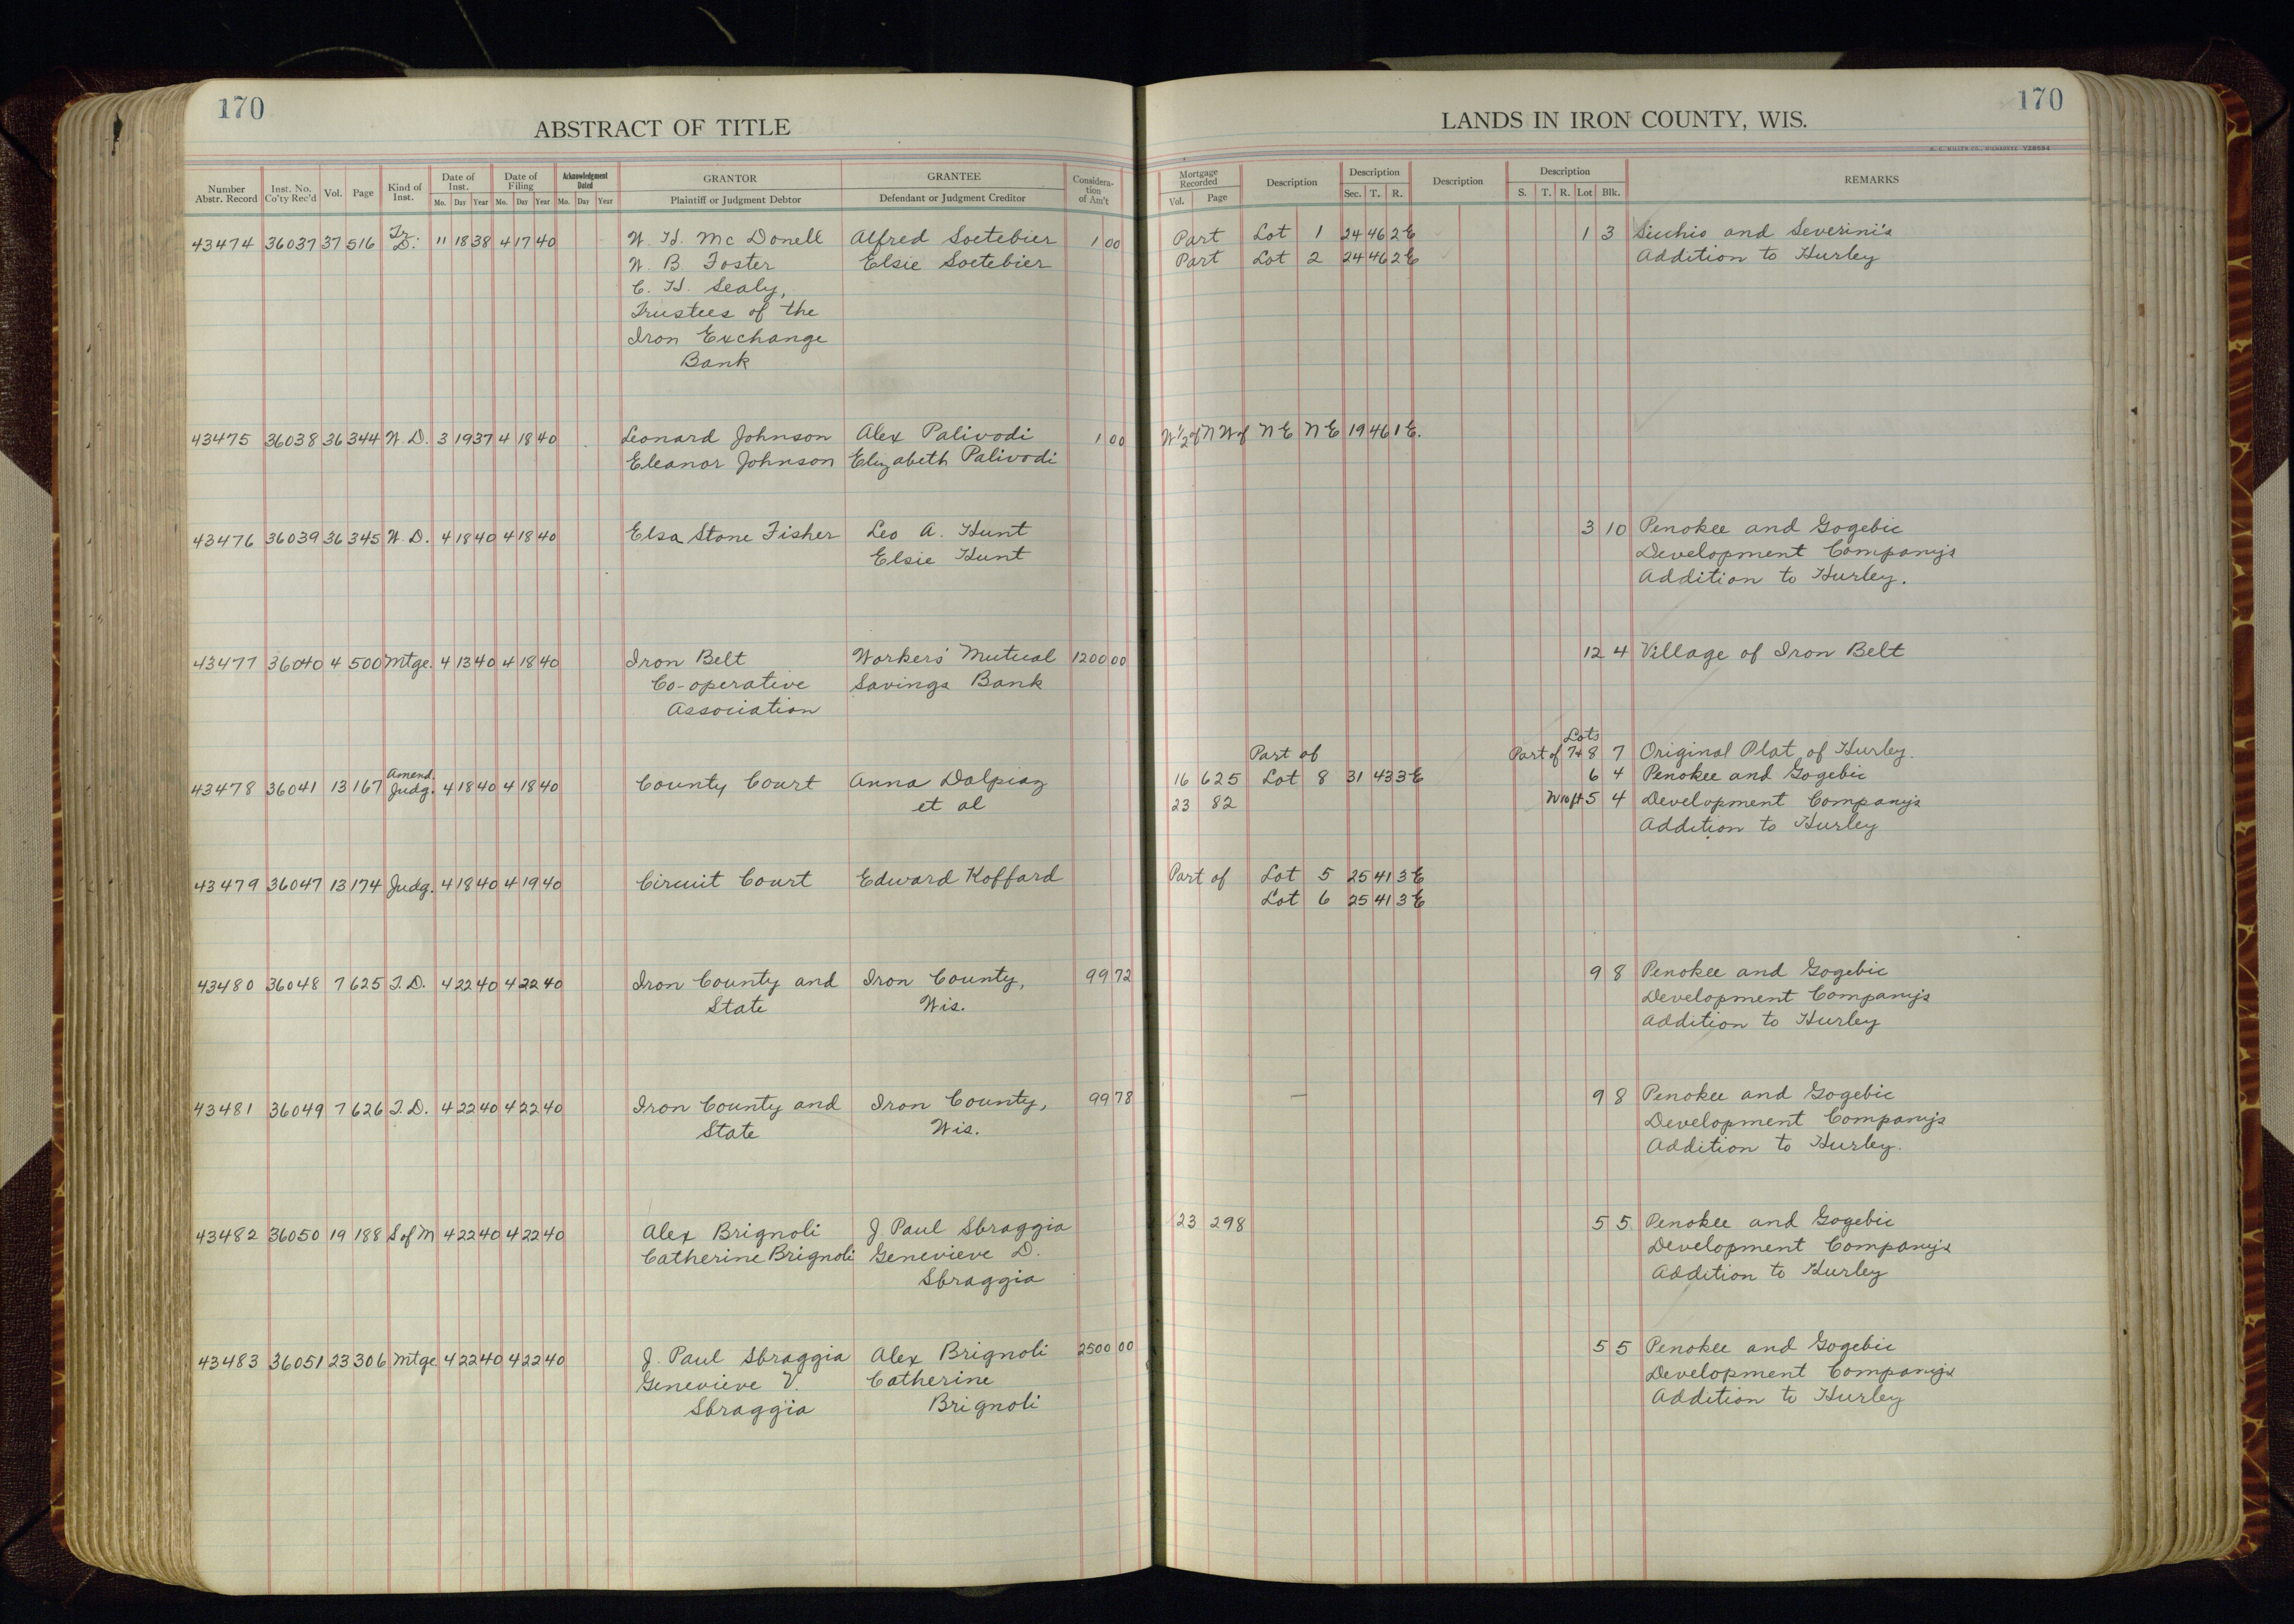 170
ABSTRACT OF TITLE
Number Abstr. Record
Inst. No. Co'ty Rec'd
Vol.
Page
Kind of Inst.
Date of Inst.
Mo. Day Year
Date of Filing
Mo. Day Year
Acknowledgment Dated
Mo. Day Year
GRANTOR
Plaintiff or Judgment Debtor
GRANTEE
Defendant or Judgment Creditor
Considera-tion of Am't
43474 36037 37 516 Tr. D. 11 18 38 4 17 40 W. H. McDonell Alfred Soetebier 1 00
W. B. Foster Elsie Soetebier
C. H. Sealy,
Trustees of the
Iron Exchange
Bank
43475 36038 36 344 W. D. 3 19 37 4 18 40 Leonard Johnson Alex Palivodi 1 00
Eleanor Johnson Elizabeth Palivodi
43476 36039 36 345 W. D. 4 18 40 4 18 40 Elsa Stone Fisher Leo A. Hunt
Elsie Hunt
43477 36040 4 500 Mtge. 4 13 40 4 18 40 Iron Belt Workers' Mutual 1200 00
Co-operative Savings Bank
Association
43478 36041 13 167 Amend. Judg. 4 18 40 4 18 40 County Court Anna Dalpiaz
et al
43479 36047 13 174 Judg. 4 18 40 4 19 40 Circuit Court Edward Koffard
43480 36048 7 625 T. D. 4 22 40 4 22 40 Iron County and Iron County, 99 72
State Wis.
43481 36049 7 626 T. D. 4 22 40 4 22 40 Iron County and Iron County, 99 78
State Wis.
43482 36050 19 188 S of M 4 22 40 4 22 40 Alex Brignoli J. Paul Sbraggia
Catherine Brignoli Genevieve D.
Sbraggia
43483 36051 23 306 Mtge 4 22 40 4 22 40 J. Paul Sbraggia Alex Brignoli 2500 00
Genevieve V. Catherine
Sbraggia Brignoli
170
LANDS IN IRON COUNTY, WIS.
H. C. MILLER CO., MILWAUKEE
Mortgage Recorded
Vol. Page
Description
Description
Sec. T. R.
Description
Description
S. T. R. Lot Blk.
REMARKS
Part Lot 1 24 46 2E 1 3 Sicchio and Severini's
Part Lot 2 24 46 2E Addition to Hurley
W 1/2 of NW of NE NE 19 46 1 E.
3 10 Penokee and Gogebic
Development Company's
Addition to Hurley.
12 4 Village of Iron Belt
Lots
Part of Part of 7+8 7 Original Plat of Hurley.
16 625 Lot 8 31 43 3E 6 4 Penokee and Gogebic
23 82 W 10 ft 5 4 Development Company's
Addition to Hurley
Part of Lot 5 25 41 3E
Lot 6 25 41 3E
9 8 Penokee and Gogebic
Development Company's
Addition to Hurley
9 8 Penokee and Gogebic
Development Company's
Addition to Hurley.
23 298 5 5 Penokee and Gogebic
Development Company's
Addition to Hurley
5 5 Penokee and Gogebic
Development Company's
Addition to Hurley